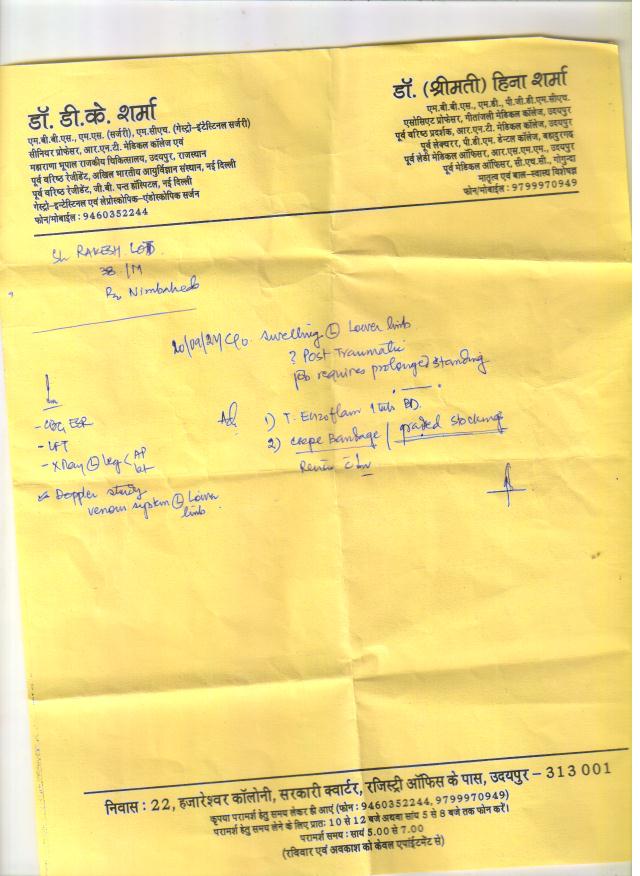 डॉ. डी.के. शर्मा
एम.बी.बी.एस., एम.एस. (सर्जरी), एम.सीएच. (गेस्ट्रो-इंटेस्टिनल सर्जरी)
सीनियर प्रोफेसर, आर.एन.टी. मेडिकल कॉलेज एवं
महाराणा भूपाल राजकीय चिकित्सालय, उदयपुर, राजस्थान
पूर्व वरिष्ठ रेजीडेंट, अखिल भारतीय आयुर्विज्ञान संस्थान, नई दिल्ली
पूर्व वरिष्ठ रेजीडेंट, जी.बी. पन्त हॉस्पिटल, नई दिल्ली
गेस्ट्रो-इन्टेस्टिनल एवं लेप्रोस्कोपिक-एंडोस्कोपिक सर्जन
फोन/मोबाईल : 9460352244
डॉ. (श्रीमती) हिना शर्मा
एम.बी.बी.एस., एम.डी., पी.जी.डी.एम.सीएच.
एसोसिएट प्रोफेसर, गीतांजली मेडिकल कॉलेज, उदयपुर
पूर्व वरिष्ठ प्रदर्शक, आर.एन.टी. मेडिकल कॉलेज, उदयपुर
पूर्व लेक्चरर, पी.डी.एम. डेन्टल कॉलेज, बहादुरगढ़
पूर्व लेडी मेडिकल ऑफिसर, आर.एस.एम.एम., उदयपुर
पूर्व मेडिकल ऑफिसर, सी.एच.सी., गोगुन्दा
मातृत्व एवं बाल-स्वास्थ्य विशेषज्ञ
फोन/मोबाईल : 9799970949
Sh. RAKESH
38 /M
20/09/24 C/o. Swelling (L) Lower limb
? Post Traumatic
Job requires prolonged standing
- CBC ESR
- LFT
- X Ray (L) leg < AP
lat
Doppler study
venous system (L) Lower
limb
Adv
1) T. Enzoflam 1 tab BD.
2) Crepe Bandage / graded stockings
निवास : 22, हजारेश्वर कॉलोनी, सरकारी क्वार्टर, रजिस्ट्री ऑफिस के पास, उदयपुर – 313 001
कृपया परामर्श हेतु समय लेकर ही आएं (फोन : 9460352244, 9799970949)
परामर्श हेतु समय लेने के लिए प्रातः 10 से 12 बजे अथवा सांय 5 से 8 बजे तक फोन करें।
परामर्श समय : सायं 5.00 से 7.00
(रविवार एवं अवकाश को केवल एपाईंटमेंट से)